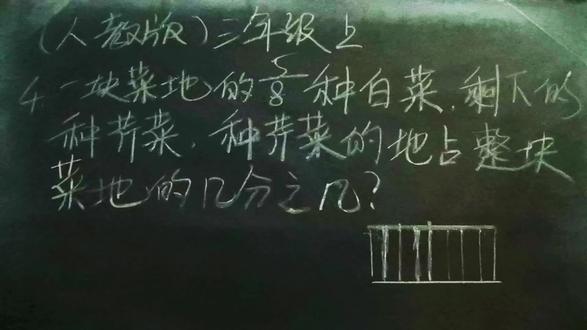 (人教版)三年级上
4.一块菜地的5/8种白菜,剩下的
种芹菜,种芹菜的地占整块
菜地的几分之几?